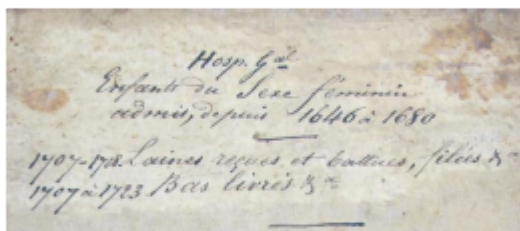 Hosp. Gal
Enfants du Sexe féminin
admis, depuis 1646 à 1680
Laines reçues et battues, filées &a
1707 à 1723 Bas livrés &a